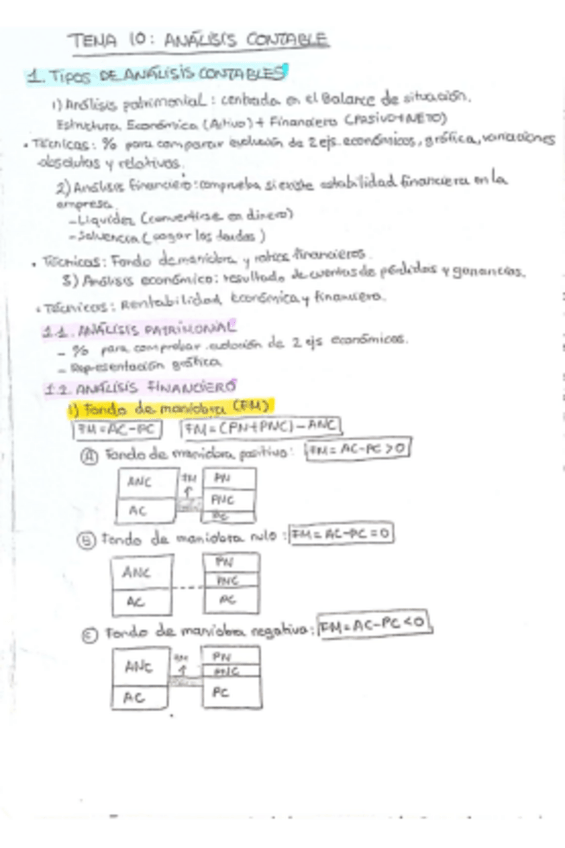 TEMA 10: ANÁLISIS CONTABLE
1. TIPOS DE ANÁLISIS CONTABLES
1) Análisis patrimonial: centrada en el Balance de situación.
Estructura Económica (Activo) + Financiera (PASIVO+NETO)
• Técnicas: % para comparar evolución de 2 ejs. económicos, gráfica, variaciones
absolutas y relativas.
2) Análisis financiero: comprueba si existe estabilidad financiera en la
empresa.
- Liquidez (convertirse en dinero)
- Solvencia (pagar las deudas)
• Técnicas: Fondo de maniobra y ratios financieros.
3) Análisis económico: resultado de cuentas de pérdidas y ganancias.
• Técnicas: Rentabilidad Económica y financiera.
1.1. ANÁLISIS PATRIMONIAL
- % para comprobar evolución de 2 ejs económicos.
- Representación gráfica
1.2. ANÁLISIS FINANCIERO
1) Fondo de maniobra (FM)
FM=AC-PC FM=(PN+PNC)-ANC
A Fondo de maniobra positivo: FM=AC-PC>0
ANC FM PN
AC PNC
PC
B Fondo de maniobra nulo: FM=AC-PC=0
ANC PN
PNC
AC AC
C Fondo de maniobra negativa: FM=AC-PC<0
ANC FM PN
PNC
AC PC